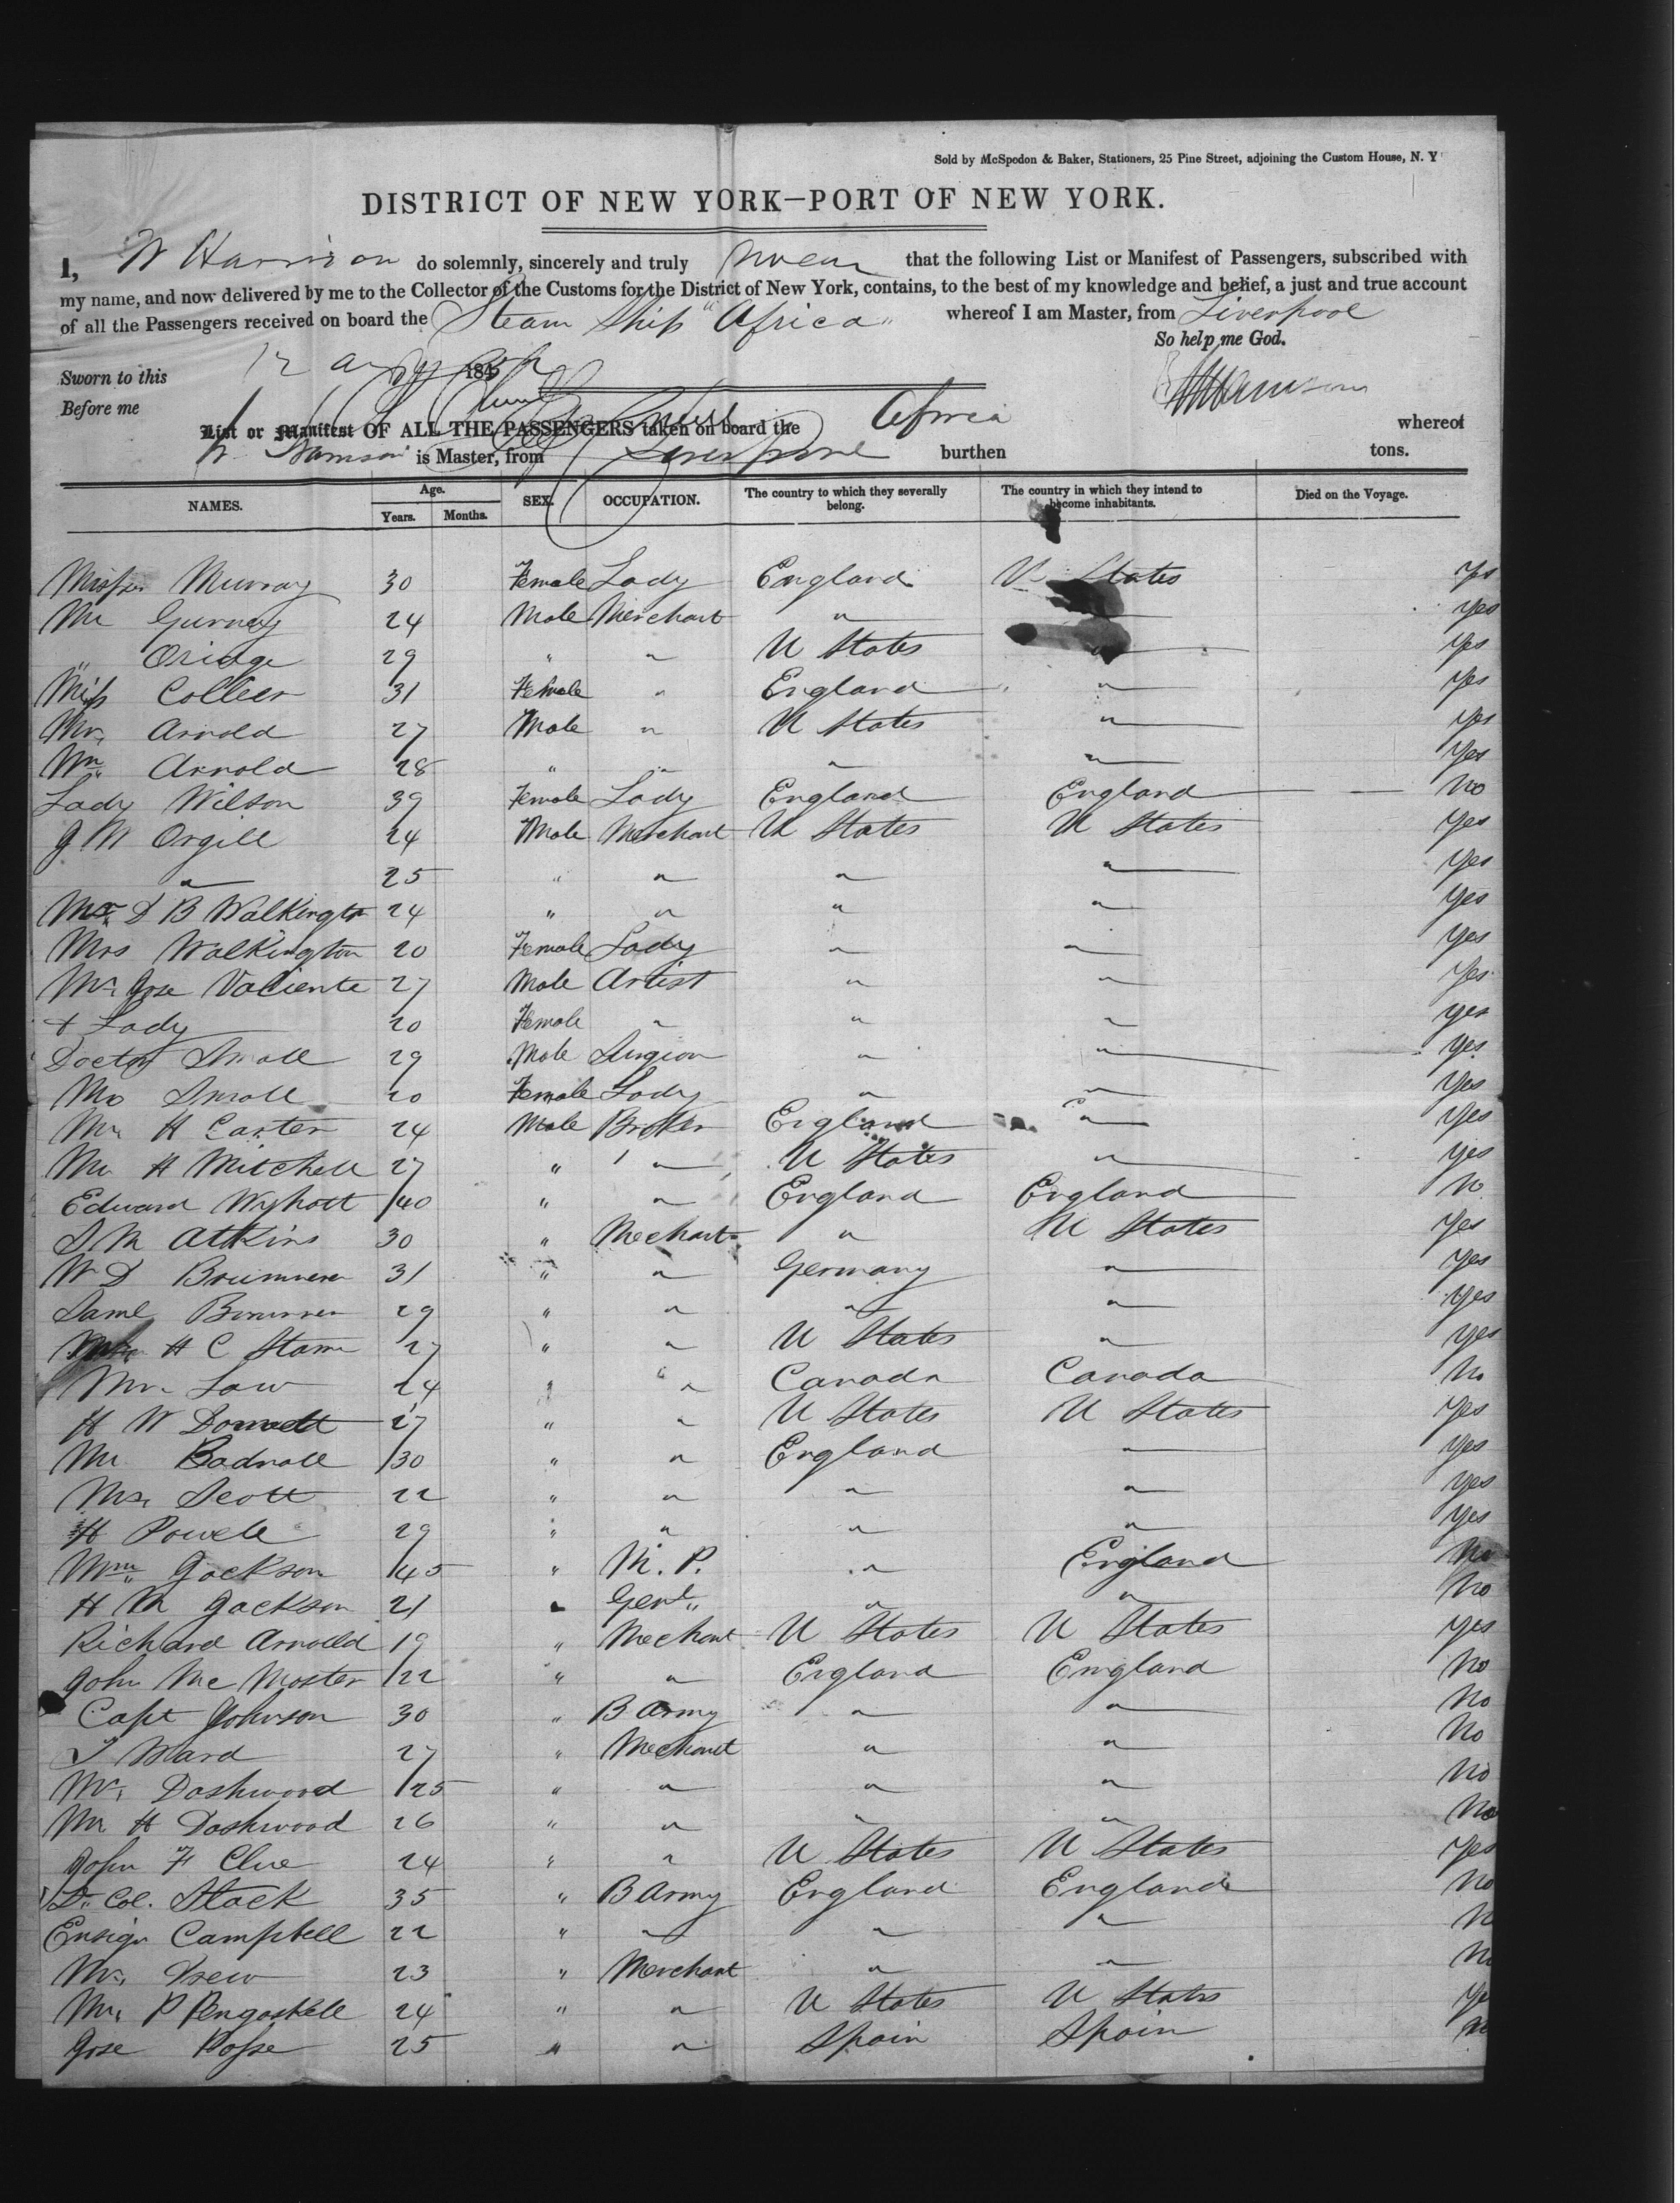 Sold by McSpedon & Baker, Stationers, 25 Pine Street, adjoining the Custom House, N. Y
DISTRICT OF NEW YORK—PORT OF NEW YORK.
I, W Harrison do solemnly, sincerely and truly swear that the following List or Manifest of Passengers, subscribed with
my name, and now delivered by me to the Collector of the Customs for the District of New York, contains, to the best of my knowledge and belief, a just and true account
of all the Passengers received on board the Steam Ship "Africa" whereof I am Master, from Liverpool
So help me God.
Sworn to this 12 185
Before me
W Harrison
List or Manifest OF ALL THE PASSENGERS taken on board the Africa whereof
W Harrison is Master, from Liverpool burthen tons.
NAMES. Age. Years. Months. SEX. OCCUPATION. The country to which they severally belong. The country in which they intend to become inhabitants. Died on the Voyage.
Murray 30 Female Lady England U States Yes
Mr Gurney 24 Male Merchant " Yes
" Oridge 29 " " U States " Yes
Miss Colleer 31 Female " England " Yes
Mr. Arnold 27 Male " U States " Yes
Wm Arnold 28 " " " " Yes
Lady Wilson 39 Female Lady England England No
J M Orgill 24 Male Merchant U States U States Yes
" 25 " " " " Yes
Mr D B Walkington 24 " " " " Yes
Mrs Walkington 20 Female Lady " " Yes
Mr. Jose Valiente 27 Male Artist " " Yes
+ Lady 20 Female " " " Yes
Doctor Small 29 Male Surgion " " Yes
Small 20 Female Lady " " Yes
Mr H Carter 24 Male Broker England " Yes
Mr H Mitchell 27 " " U States " Yes
Edward 40 " " England England No
S M Atkins 30 " Mechant " U States Yes
W D 31 " " Germany " Yes
Saml 29 " " " " Yes
H C Stam 27 " " U States " Yes
Mr. Law 24 " " Canada Canada No
H W 27 " " U States U States Yes
Mr Badnall 30 " " England " Yes
Mr. Scott 22 " " " " Yes
H Powell 29 " " " " Yes
Wm Jackson 45 " M. P. " England No
H M Jackson 21 " Gent " " No
Richard Arnolld 19 " Mechant U States U States Yes
John Mc Master 22 " " England England No
Capt Johnson 30 " B Army " " No
T Ward 27 " Mechant " " No
Mr. Dashwood 25 " " " " No
Mr H Dashwood 26 " " " " No
John F Clue 24 " " U States U States Yes
Lt. Col. Stack 35 " B Army England England No
Ensign Campbell 22 " " " " N
Mr. Drew 23 " Merchant " " N
Mr. P Pengaskell 24 " " U States U States Ye
Jose Posse 25 " " Spain Spain N